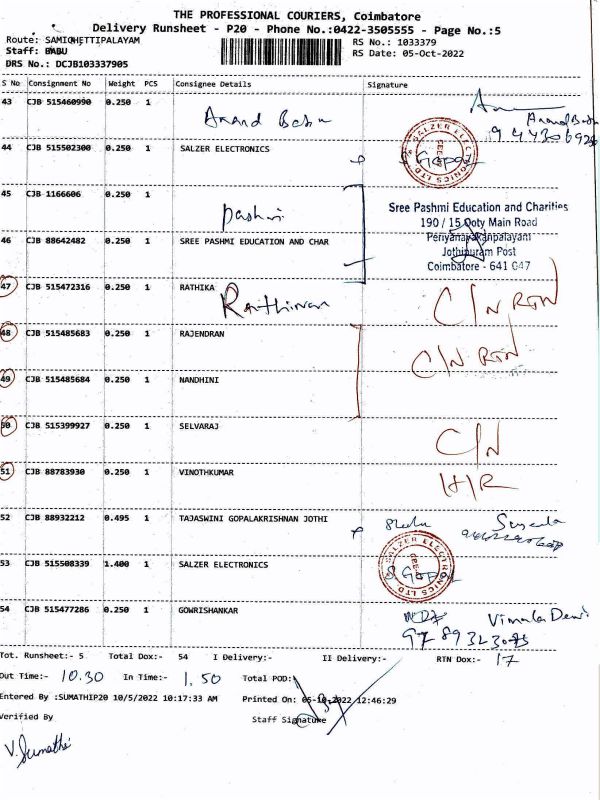 THE PROFESSIONAL COURIERS, Coimbatore
Delivery Runsheet - P20 - Phone No.:0422-3505555 - Page No.:5
Route: SAMICHETTIPALAYAM
Staff: BABU
RS No.: 1033379
RS Date: 05-Oct-2022
DRS No.: DCJB103337905
S No Consignment No Weight PCS Consignee Details Signature
43 CJB 515460990 0.250 1 Anand Babu
44 CJB 515502300 0.250 1 SALZER ELECTRONICS
SALZER ELECTRONICS LTD
S Gopal
45 CJB 1166606 0.250 1 Pashmi
Sree Pashmi Education and Charities
190 / 15 Ooty Main Road
Periyanayakanpalayam
Jothipuram Post
Coimbatore - 641 047
46 CJB 88642482 0.250 1 SREE PASHMI EDUCATION AND CHAR
47 CJB 515472316 0.250 1 RATHIKA
C/N RTN
48 CJB 515485683 0.250 1 RAJENDRAN
C/N RTN
49 CJB 515485684 0.250 1 NANDHINI
50 CJB 515399927 0.250 1 SELVARAJ
C/N
51 CJB 88783930 0.250 1 VINOTHKUMAR
H/R
52 CJB 88932212 0.495 1 TAJASWINI GOPALAKRISHNAN JOTHI
53 CJB 515508339 1.400 1 SALZER ELECTRONICS
SALZER ELECTRONICS LTD
S Gopal
54 CJB 515477286 0.250 1 GOWRISHANKAR
Vimala Devi
Tot. Runsheet:- 5 Total Dox:- 54 I Delivery:- II Delivery:- RTN Dox:- 17
Out Time:- 10.30 In Time:- 1.50 Total POD:
Entered By :SUMATHIP20 10/5/2022 10:17:33 AM Printed On: 05-10-2022 12:46:29
Verified By
Staff Signature
V. Sumathi